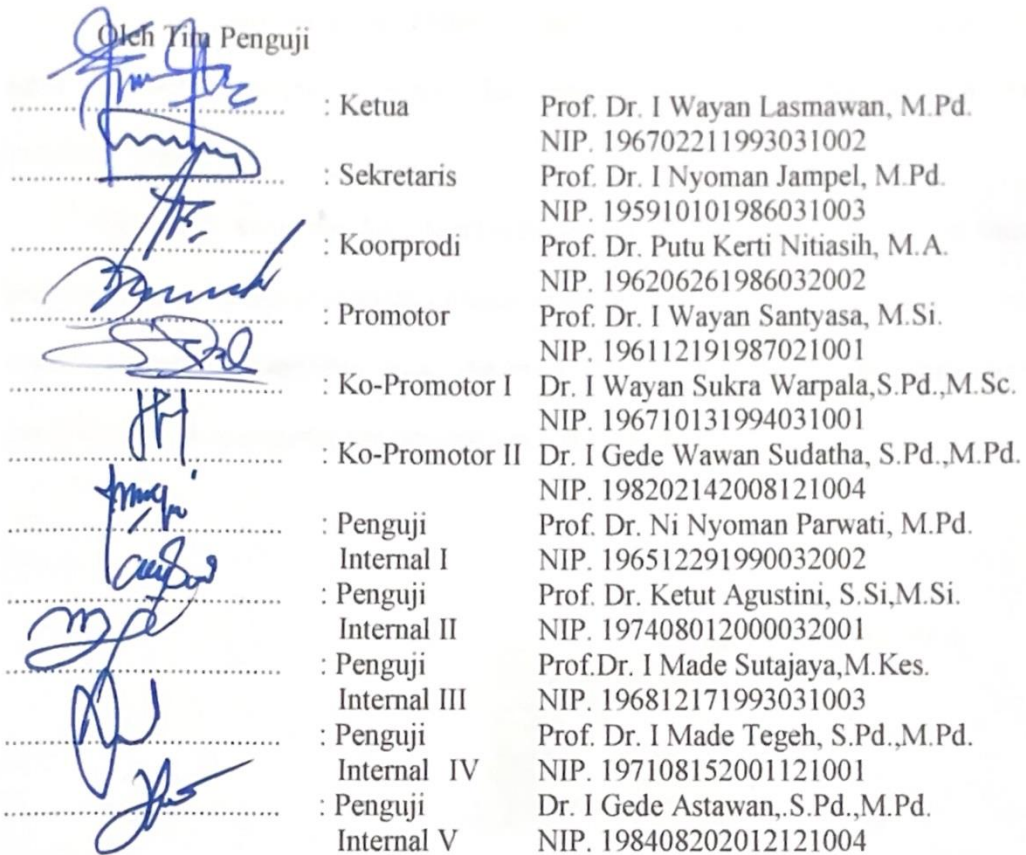 Oleh Tim Penguji
: Ketua Prof. Dr. I Wayan Lasmawan, M.Pd.
NIP. 196702211993031002
: Sekretaris Prof. Dr. I Nyoman Jampel, M.Pd.
NIP. 195910101986031003
: Koorprodi Prof. Dr. Putu Kerti Nitiasih, M.A.
NIP. 196206261986032002
: Promotor Prof. Dr. I Wayan Santyasa, M.Si.
NIP. 196112191987021001
: Ko-Promotor I Dr. I Wayan Sukra Warpala,S.Pd.,M.Sc.
NIP. 196710131994031001
: Ko-Promotor II Dr. I Gede Wawan Sudatha, S.Pd.,M.Pd.
NIP. 198202142008121004
: Penguji Prof. Dr. Ni Nyoman Parwati, M.Pd.
Internal I NIP. 196512291990032002
: Penguji Prof. Dr. Ketut Agustini, S.Si,M.Si.
Internal II NIP. 197408012000032001
: Penguji Prof.Dr. I Made Sutajaya,M.Kes.
Internal III NIP. 196812171993031003
: Penguji Prof. Dr. I Made Tegeh, S.Pd.,M.Pd.
Internal IV NIP. 197108152001121001
: Penguji Dr. I Gede Astawan,.S.Pd.,M.Pd.
Internal V NIP. 198408202012121004